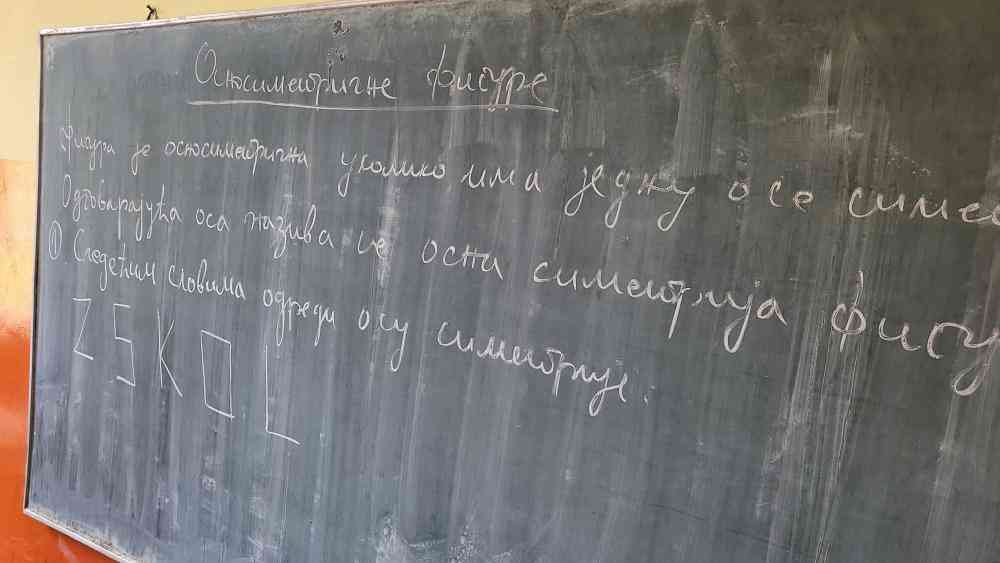 Осносиметричне фигуре
Фигура је осносиметрична уколико има једну осе симет
Одговарајућа оса назива се осни симетрија фигу
① Следећим словима одреди осу симетрије:
Z S K O L